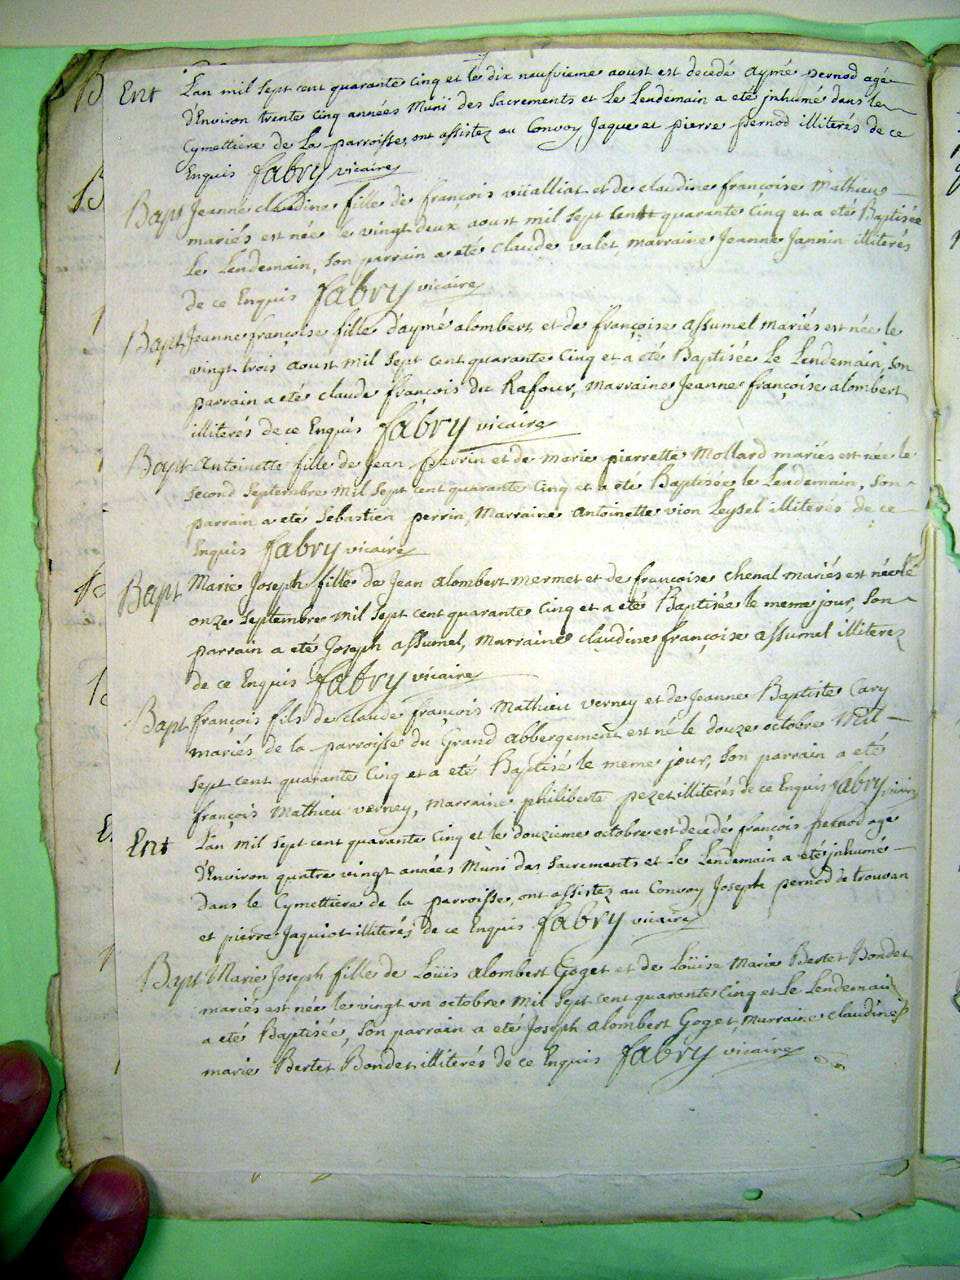 Ent L'an mil sept cent quarante cinq et le dix neufvieme aoust est decedé aymé pernod agé
d'Environ trente cinq années Muni des Sacrements et Le Lendemain a eté jnhumé dans le
Cymettiere de La parroisse, ont assistez au Convoy Jaque et pierre pernod illiterés de ce
Enquis fabry vicaire
Bapt Jeanne claudine fille de françois vuialliat et de claudine françoise Mathieu
mariés est née le vingt deux aoust mil sept cent quarante cinq et a eté Baptisée
le Lendemain, Son parrain a eté claude valet, marraine Jeanne Jannin illiterés
de ce Enquis fabry vicaire
Bapt Jeanne françoise fille d'aymé alombert et de françoise assumel mariés est née le
vingt trois aoust mil sept cent quarante cinq et a eté Baptisée Le Lendemain, son
parrain a eté claude françois du Rafour, marraine Jeanne françoise alombert
illiterés de ce Enquis fabry vicaire
Bapt Antoinette fille de Jean perrin et de marie pierrette Mollard mariés est née le
second Septembre Mil Sept cent quarante Cinq et a eté Baptisée le Lendemain, Son
parrain a eté Sebastien perrin, Marraine antoinette vion Leysel illiterés de ce
Enquis fabry vicaire
Bapt Marie Joseph fille de Jean alombert mermet et de françoise chenal mariés est née le
onze Septembre Mil Sept cent quarante Cinq et a eté Baptisée le meme jour, Son
parrain a eté Joseph assumel, Marraine claudine françoise assumel illiterez
de ce Enquis fabry vicaire
Bapt françois fils de claude françois Mathieu verney et de Jeanne Baptiste Cary
mariés de la parroisse du Grand abbergement est né le douze octobre Mil
sept cent quarante Cinq et a eté Baptisé le meme jour, Son parrain a eté
françois Mathieu verney, marraine philiberte pezet illiterés de ce Enquis fabry vicaire
Ent L'an mil sept cent quarante Cinq et le douzieme octobre est decedé françois pernod age
d'Environ quatre vingt années Muni des Sacrements et Le Lendemain a eté jnhumé
Dans le Cymettiere de la parroisse, ont assistez au Convoy Joseph pernod de trouvan
et pierre Jaquiot illiterés de ce Enquis fabry vicaire
Bapt Marie Joseph fille de Loüis alombert Goget et de Loüise Marie Bertet Bondet
mariés est née le vingt un octobre mil sept cent quarante Cinq et Le Lendemain
a eté Baptisée, Son parrain a eté Joseph alombert Goget, Marraine claudine
marie Bertet Bondet illiterés de ce Enquis fabry vicaire